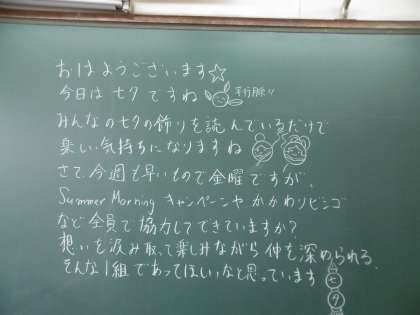 おはようございます☆
今日は七夕ですね
みんなの七夕の飾りを読んでいるだけで
楽しい気持ちになりますね
さて、今週も早いもので金曜ですが、
Summer Morning キャンペーンや かかわりビンゴ
など全員で協力してできていますか?
想いを汲み取って楽しみながら 仲を深められる、
そんな1組であってほしいなと思っています
七夕